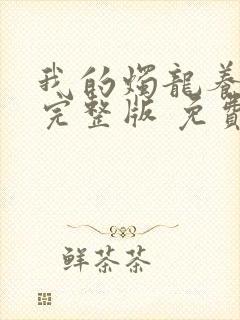 我的燭龍養
完整版 免費
鮮茶茶